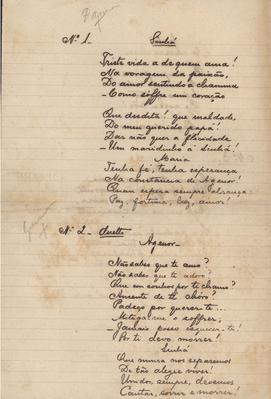 Nº 1. Sinhá
Triste vida a de quem ama!
Na voragem da paixão,
Do amor sentindo a chamma
- Como soffre um coração
Que desdita! que maldade,
Do meu querido papá!
Dar não quer a flicidade
- Um maridinho á Sinhá!
Maria
Tenha fé, tenha esperança
Na constancia de Agenor!
Quem espera sempre
Paz, fortuna, luz, amor!
Nº 2 - duetto
Agenor -
Não sabes que te amo?
Não sabes que te adoro?
Que em sonhos por ti chamo?
Ausente de ti choro!
Padeço por querer-te...
Mitiga-me o soffrer,
- Jamais posso esquecer-te!
Por ti devo morrer!
Sinhá
Que nunca nos separemos
De tão alegre viver!
Unidos, sempre, devemos
Cantar, sorrir e morrer!